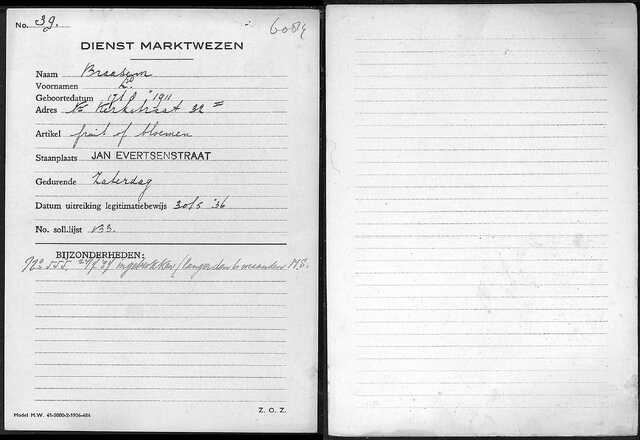 No. 39.
6084
DIENST MARKTWEZEN
Naam Braasem
Voornamen L.
Geboortedatum 1911
Adres Kerkstraat 32
Artikel fruit of bloemen
Staanplaats JAN EVERTSENSTRAAT
Gedurende Zaterdag
Datum uitreiking legitimatiebewijs 30/5 '36
No. soll.lijst 133.
BIJZONDERHEDEN:
No 555, ingetrokken (langer dan 6 maanden M.S.
Z. O. Z.
Model M.W.